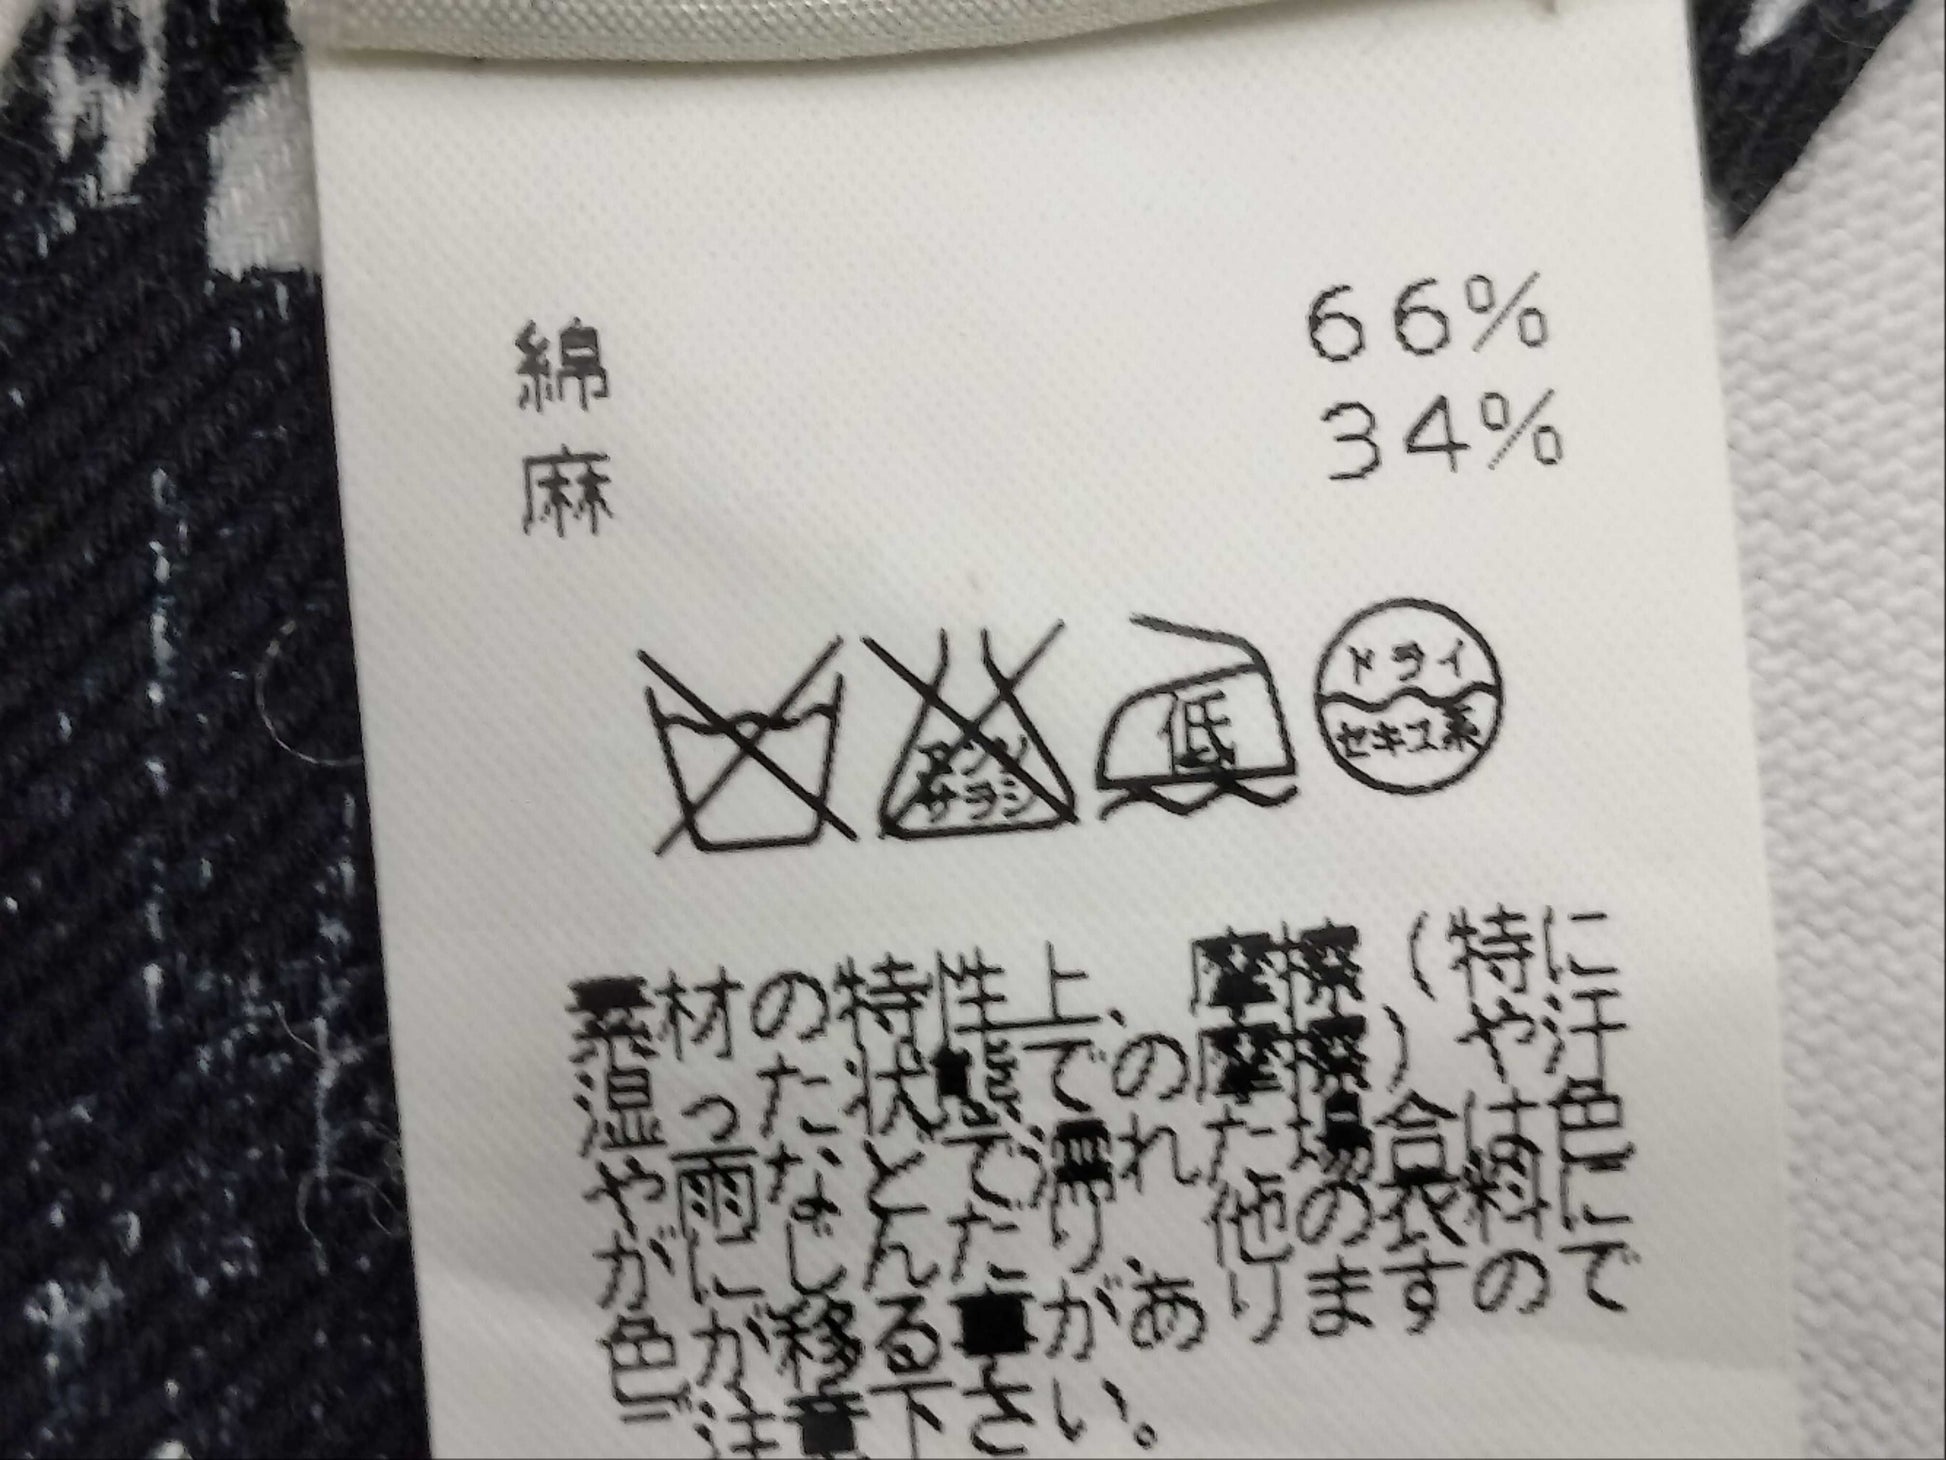 綿 66%
麻 34%
エンソ
サラシ
低
ドライ
セキユ系
素材の特性上、摩擦(特に
湿った状態での摩擦)や汗
や雨などで濡れた場合は色
がにじんだり、他の衣料に
色が移る事がありますので
ご注意下さい。